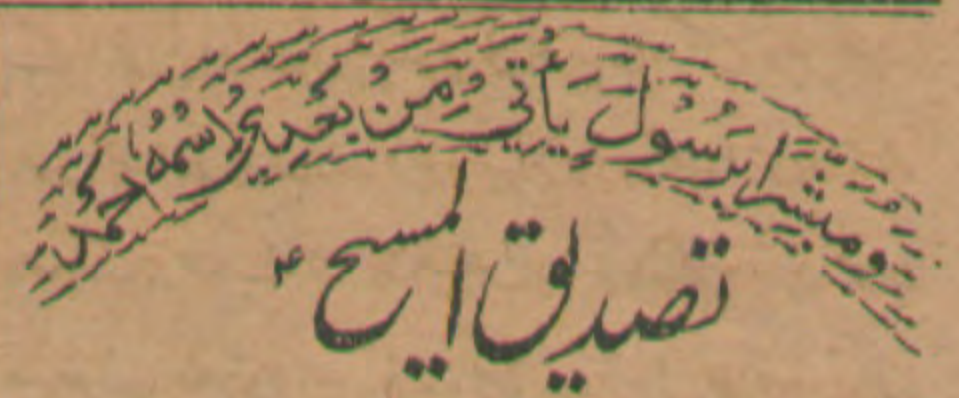 ومبشرا برسول یأتی من بعدی اسمه احمد
تصدیق المسیح ؑ